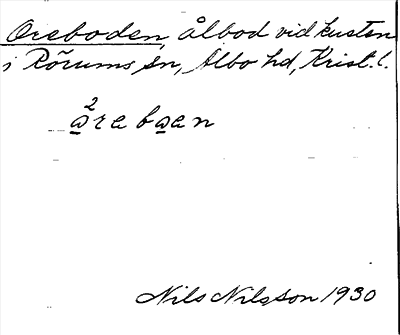 Oreboden, ålbod vid kusten
i Rörums sn, Albo hd, Krist. l.
2
å̲ r e b a̲ e n
Nils Nilsson 1930